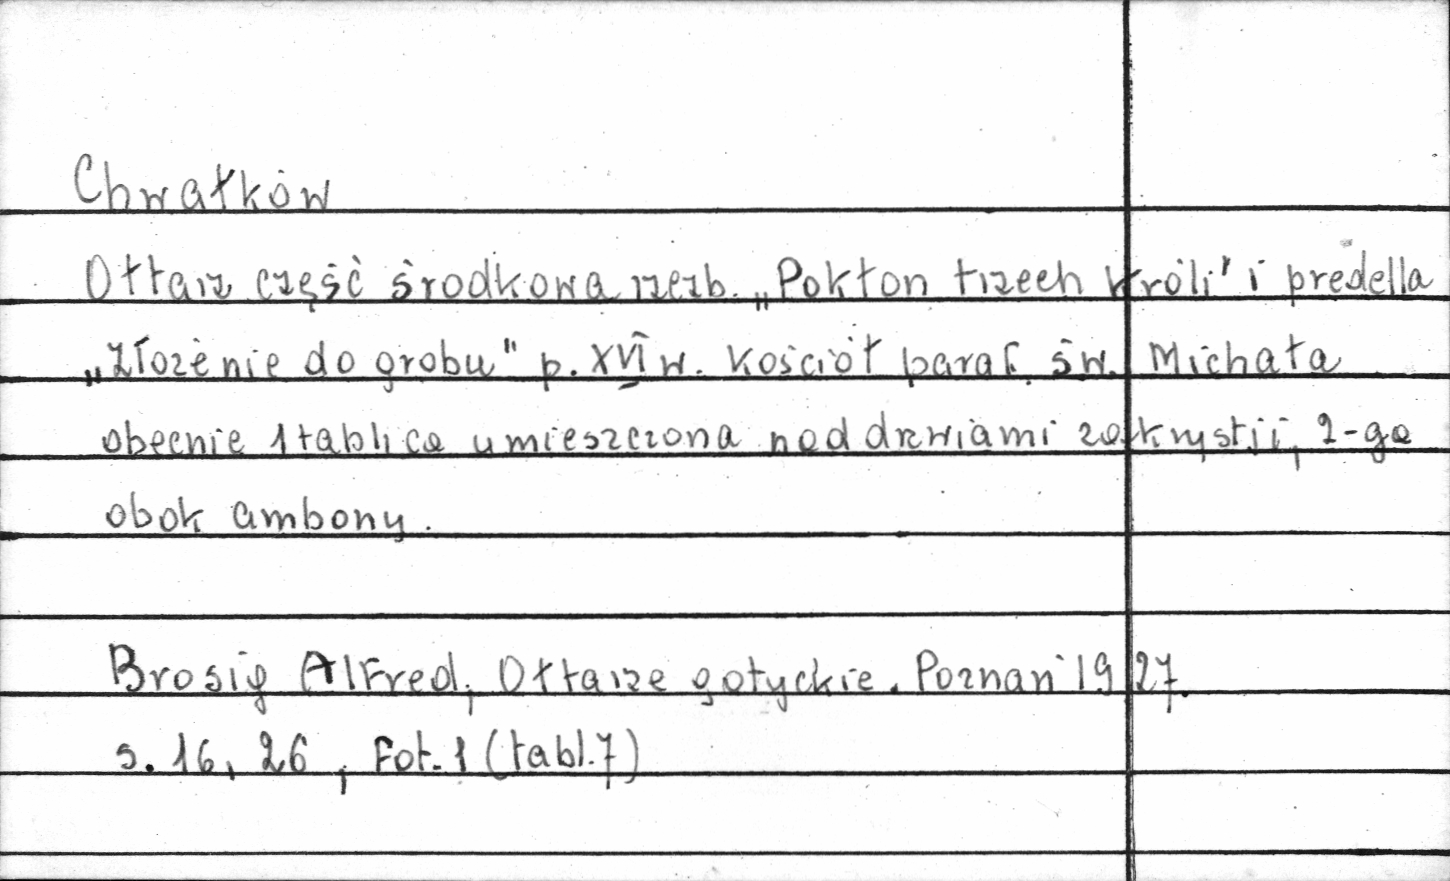 Chwałków
Ołtarz część środkowa rzeźb. „Pokłon trzech Króli" i predella
„Złożenie do grobu" p. XVI w. Kościół paraf. św. Michała
obecnie 1 tablica umieszczona nad drzwiami zakrystii, 2-ga
obok ambony.
Brosig Alfred, Ołtarze gotyckie. Poznań 1927.
s. 16, 26, Fot. 1 (tabl. 7)